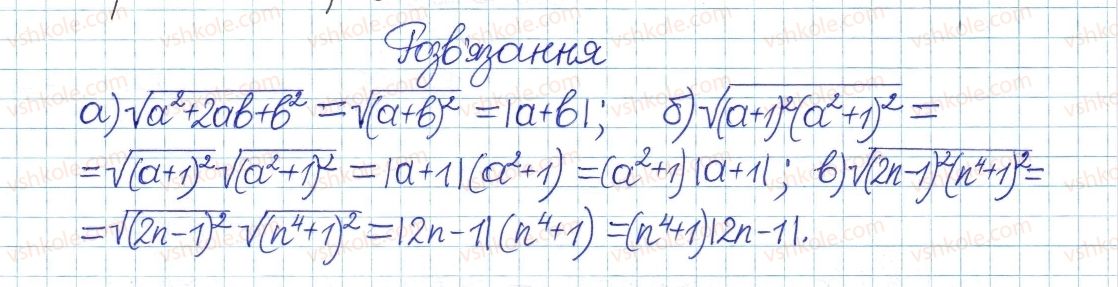 Розв'язання
а) √(a²+2ab+b²) = √(a+b)² = |a+b|; б) √((a+1)²(a²+1)²) =
= √(a+1)² √(a²+1)² = |a+1|(a²+1) = (a²+1)|a+1|; в) √((2n-1)²(n⁴+1)²) =
= √(2n-1)² √(n⁴+1)² = |2n-1|(n⁴+1) = (n⁴+1)|2n-1|.